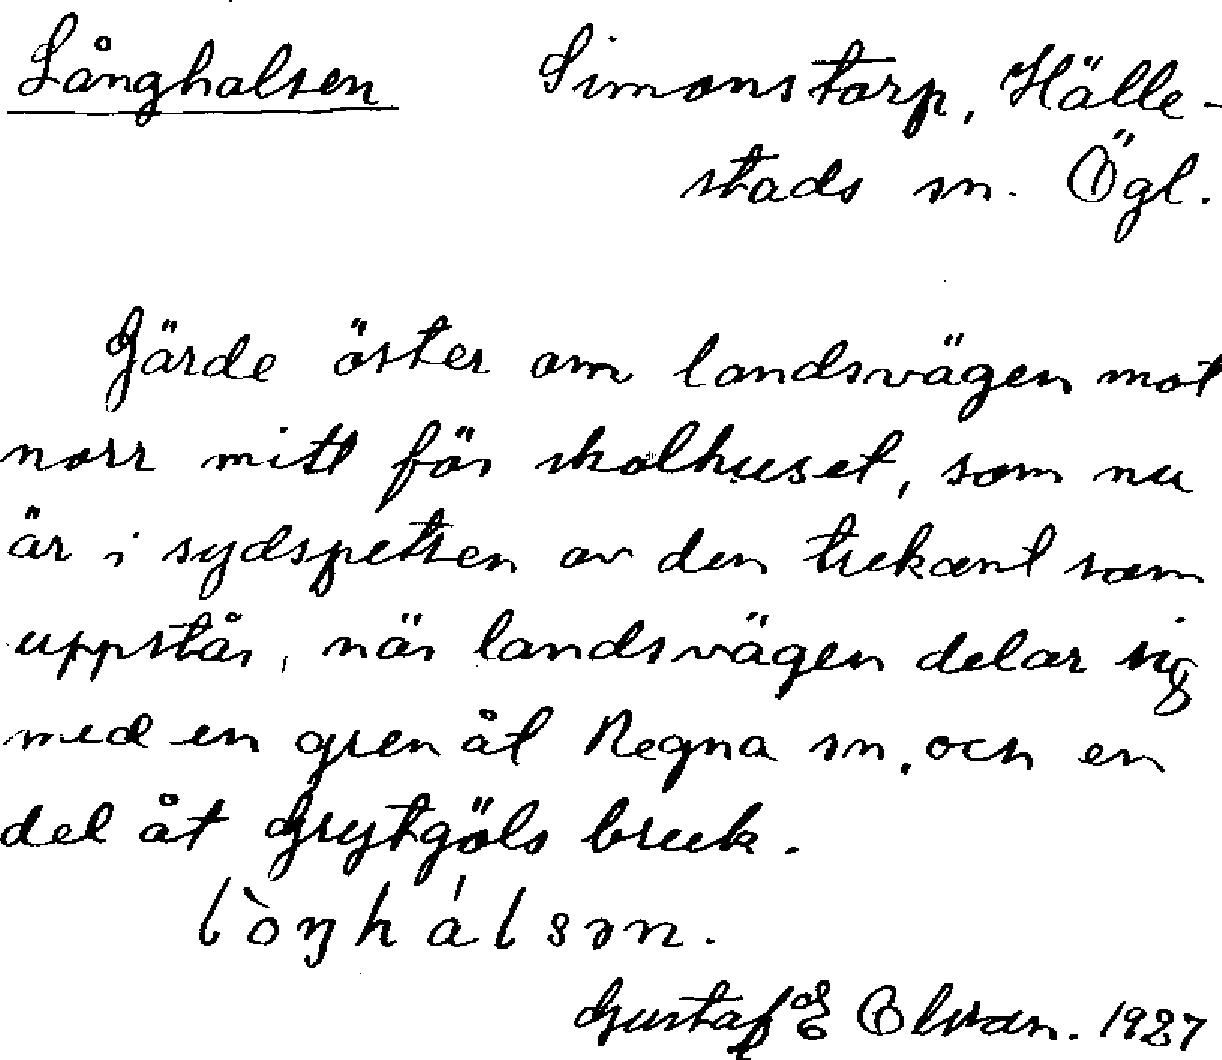 Långhalsen Simonstorp, Hälle-
stads sn. Ögl.
Gärde öster om landsvägen mot
norr mitt för skolhuset, som nu
är i sydspetsen av den trekant som
uppstår, när landsvägen delar sig
med en gren åt Regna sn. och en
del åt Grytgöls bruk.
Gustaf E Olson. 1927